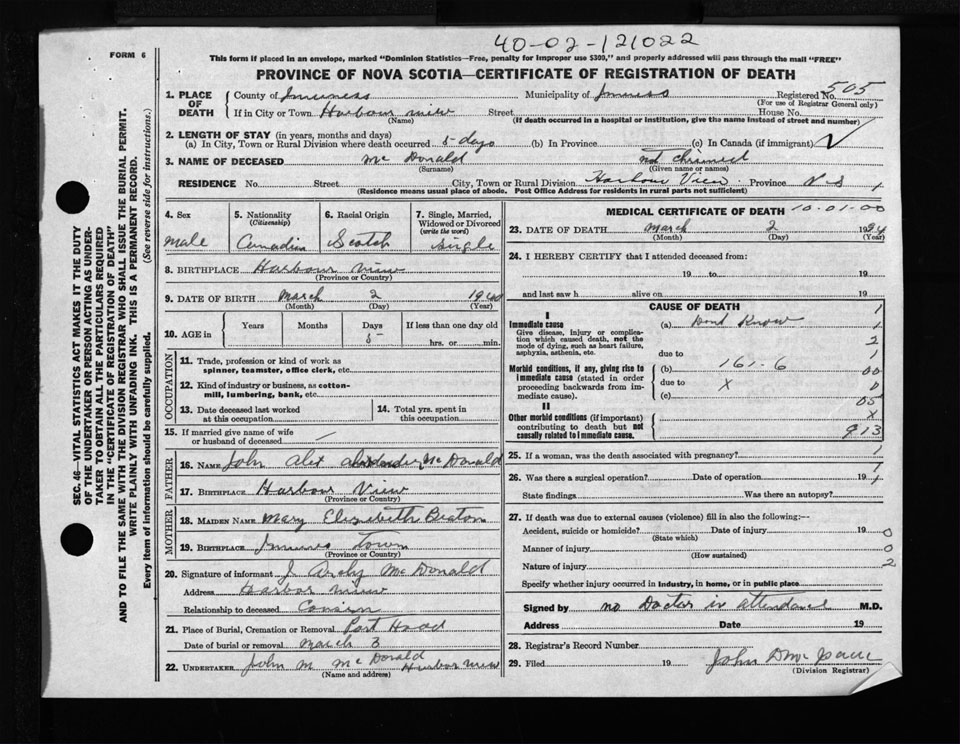 40-02-121022
FORM 6
This form if placed in an envelope, marked "Dominion Statistics—Free, penalty for improper use $300," and properly addressed will pass through the mail "FREE"
PROVINCE OF NOVA SCOTIA—CERTIFICATE OF REGISTRATION OF DEATH
SEC. 46—VITAL STATISTICS ACT MAKES IT THE DUTY
OF THE UNDERTAKER OR PERSON ACTING AS UNDER-
TAKER TO OBTAIN ALL THE PARTICULARS REQUIRED
IN THE "CERTIFICATE OF REGISTRATION OF DEATH"
AND TO FILE THE SAME WITH THE DIVISION REGISTRAR WHO SHALL ISSUE THE BURIAL PERMIT.
WRITE PLAINLY WITH UNFADING INK. THIS IS A PERMANENT RECORD.
Every item of information should be carefully supplied. (See reverse side for instructions.)
1. PLACE OF DEATH County of Inverness Municipality of Registered No. 505
(For use of Registrar General only)
If in City or Town Harbour View Street House No.
(Name) (If death occurred in a hospital or institution, give the name instead of street and number)
2. LENGTH OF STAY (in years, months and days)
(a) In City, Town or Rural Division where death occurred 5-days (b) In Province (c) In Canada (if immigrant)
3. NAME OF DECEASED Mc Donald not chrisned
(Surname) (Given name or names)
RESIDENCE No. Street City, Town or Rural Division Harbour View Province N-S 1
(Residence means usual place of abode. Post Office Address for residents in rural parts not sufficient)
4. Sex male
5. Nationality (Citizenship) Canadian
6. Racial Origin Scotch
7. Single, Married, Widowed or Divorced (write the word) Single
8. BIRTHPLACE Harbour View
(Province or Country)
9. DATE OF BIRTH March 2 1940
(Month) (Day) (Year)
10. AGE in Years Months Days 5- If less than one day old hrs. or min.
OCCUPATION
11. Trade, profession or kind of work as spinner, teamster, office clerk, etc.
12. Kind of industry or business, as cotton-mill, lumbering, bank, etc.
13. Date deceased last worked at this occupation
14. Total yrs. spent in this occupation
15. If married give name of wife or husband of deceased —
FATHER
16. NAME John Alex Mc Donald
17. BIRTHPLACE Harbour View
(Province or Country)
MOTHER
18. MAIDEN NAME Mary Elizabeth Beaton
19. BIRTHPLACE Town
(Province or Country)
20. Signature of informant J. Mc Donald
Address
Relationship to deceased Cousin
21. Place of Burial, Cremation or Removal Port Hood
Date of burial or removal March 3
22. UNDERTAKER John M. Mc Donald Harbor View
(Name and address)
MEDICAL CERTIFICATE OF DEATH 10-01-00
23. DATE OF DEATH March 2 19
(Month) (Day) (Year)
24. I HEREBY CERTIFY that I attended deceased from:
19 to 19
and last saw h alive on 19
CAUSE OF DEATH 1
I
Immediate cause (a) Dont Know 1
Give disease, injury or complication which caused death, not the mode of dying, such as heart failure, asphyxia, asthenia, etc. 2
due to 1
Morbid conditions, if any, giving rise to immediate cause (stated in order proceeding backwards from immediate cause). (b) 161-6 00
due to X 0
(c) 05
II
Other morbid conditions (if important) contributing to death but not causally related to immediate cause. X
913
25. If a woman, was the death associated with pregnancy? 1
26. Was there a surgical operation? Date of operation 19
State findings Was there an autopsy?
27. If death was due to external causes (violence) fill in also the following:—
Accident, suicide or homicide? Date of injury 19 0
(State which)
Manner of injury 0
(How sustained)
Nature of injury 2
Specify whether injury occurred in industry, in home, or in public place
Signed by no Doctor in attendance M.D.
Address Date 19
28. Registrar's Record Number
29. Filed 19 John D Mc Isaac
(Division Registrar)